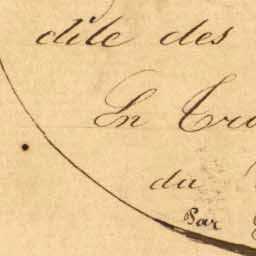 dite des
En Tro
du
Par